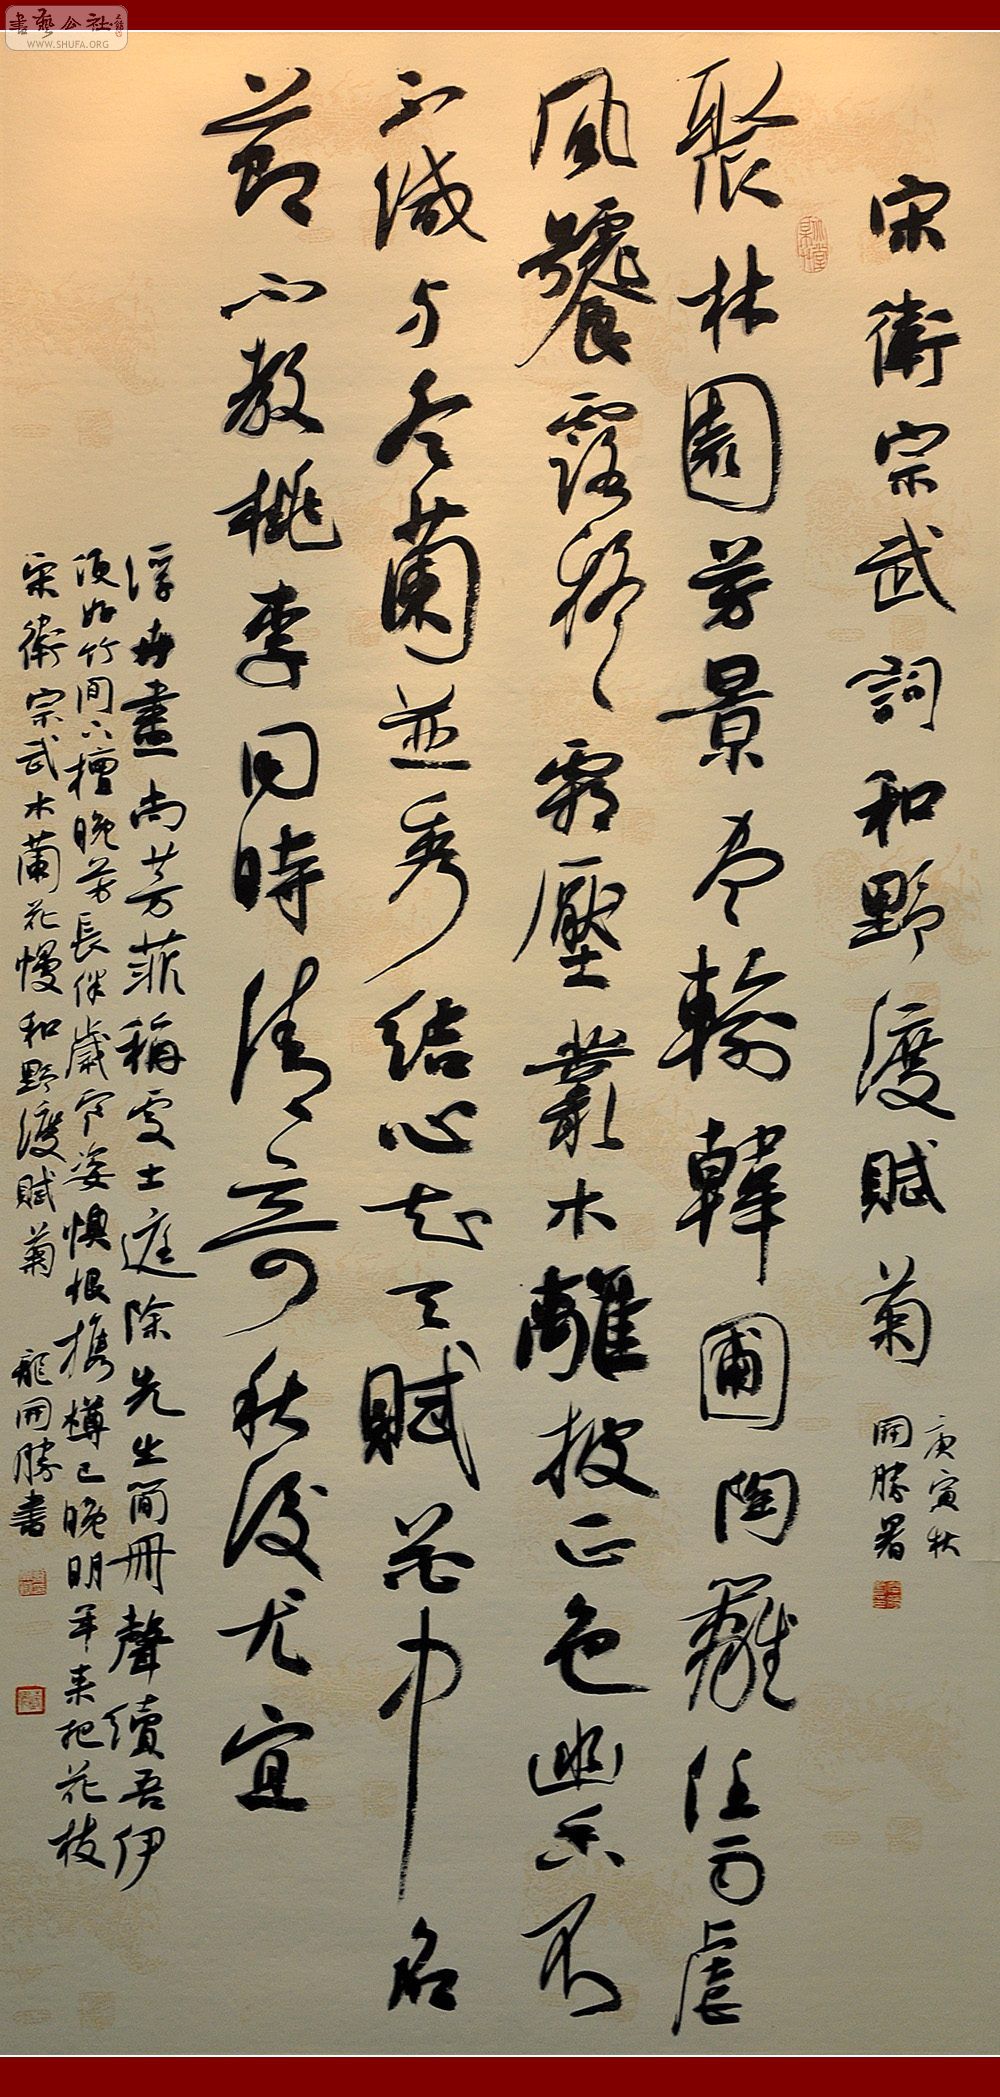 書藝公社
WWW.SHUFA.ORG
宋衛宗武詞和野渡賦菊
庚寅秋
開勝署
聚林園芳景尽輸韓圃陶籬任雨虐
風饕露移霜壓叢木離披正色幽香不
不減與冬蘭並秀結心知天賦花中名
節不教桃李同時清奇秋後尤宜
浮卉盡尚芳菲稱處士庭除先生簡冊聲續吾伊
須好竹間六檀晚芳長伴歲寒姿懊恨攜樽已晚明年来把花枝
宋衛宗武木蘭花慢和野渡賦菊 龍開勝書